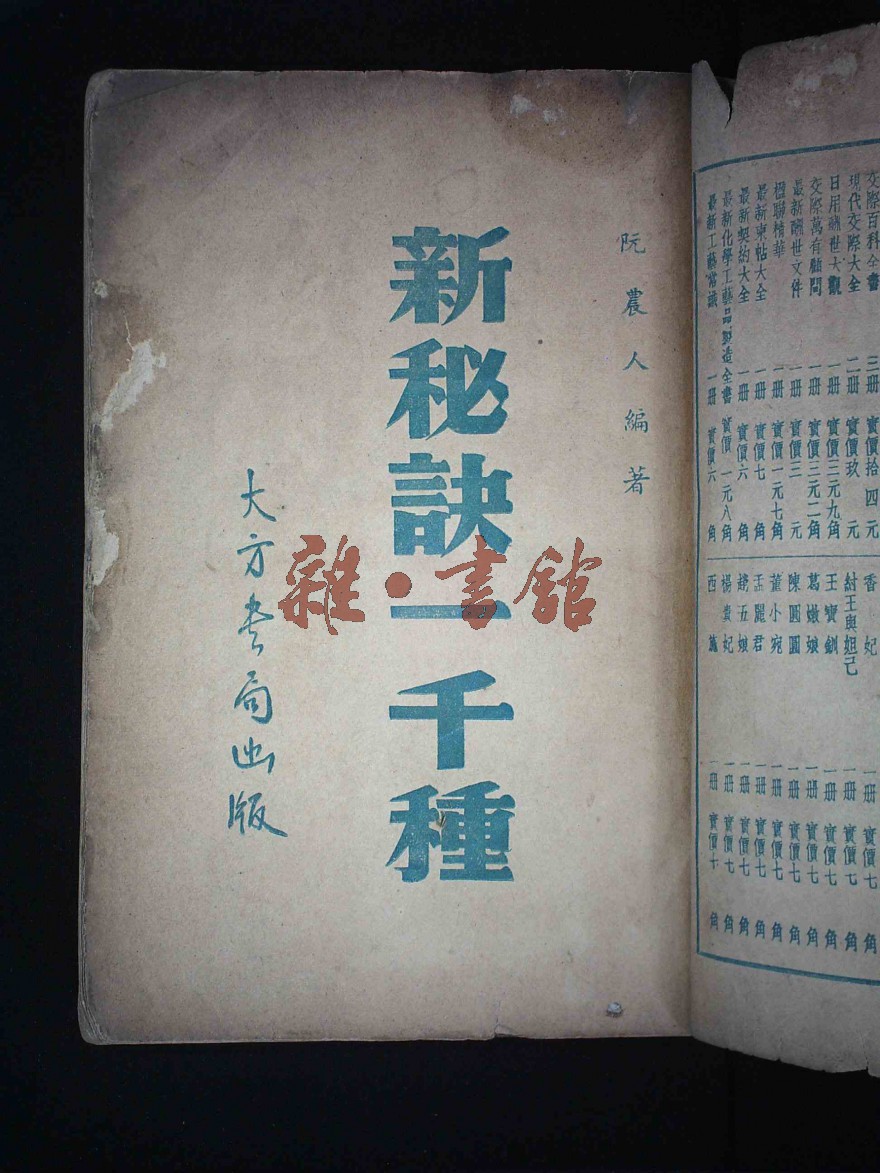 交際百科全書 三册 實價拾四元
現代交際大全 二册 實價玖元
日用酬世大觀 一册 實價三元九角
交際萬有顧問 一册 實價三元二角
最新酬世文件 一册 實價三元
楹聯精華 一册 實價一元七角
最新柬帖大全 一册 實價七角
最新契約大全 一册 實價六角
最新化學工藝品製造全書 一册 實價一元八角
最新工藝常識 一册 實價六角
香妃 一册 實價七角
紂王與妲己 一册 實價七角
王寶釧 一册 實價七角
葛嫩娘 一册 實價七角
陳圓圓 一册 實價七角
董小宛 一册 實價七角
孟麗君 一册 實價七角
趙五娘 一册 實價七角
楊貴妃 一册 實價七角
西施 一册 實價七角
阮農人編著
新秘訣一千種
大方書局出版
雜·書館